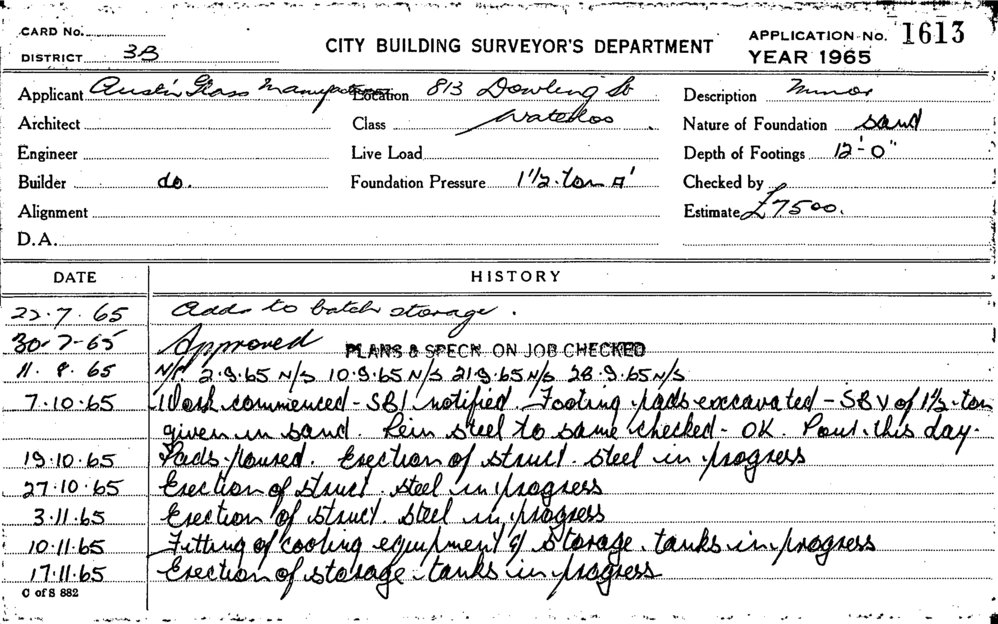 CARD No.
DISTRICT 3B
CITY BUILDING SURVEYOR'S DEPARTMENT
APPLICATION No. 1613
YEAR 1965
Applicant Austin Glass Location 813 Dowling St Description Minor
Architect Class Waterloo Nature of Foundation sand
Engineer Live Load Depth of Footings 12'-0"
Builder do. Foundation Pressure 1½ ton □' Checked by
Alignment Estimate £7500.
D.A.
DATE HISTORY
22.7.65 Adds to batch storage.
30-7-65 Approved PLANS & SPECN. ON JOB CHECKED
11.8.65 N/S. 2.9.65 N/S 10.9.65 N/S 21.9.65 N/S 28.9.65 N/S
7.10.65 Work commenced - SBI notified. Footing pads excavated - SBV of 1½ ton
given in sand. Rein steel to same checked - OK. Pour this day.
19.10.65 Pads poured. Erection of struct. steel in progress
27.10.65 Erection of struct. steel in progress
3.11.65 Erection of struct. steel in progress
10.11.65 Fitting of cooling equipment & storage tanks in progress
17.11.65 Erection of storage tanks in progress
C of S 882